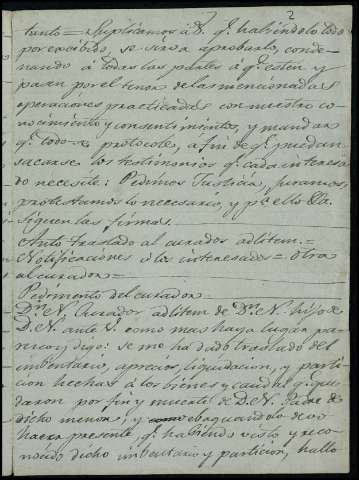 2
tanto = Suplicamos á V. qe. habiendolo todo
por exibido, se sirva aprobarlo, conde-
nando á todas las partes á qe. esten y
pasen por el tenor de las mencionadas
operaciones practicadas con nuestro co-
nocimiento y consentimientos, y mandar
qe. todo se protocole, a fin de qe. puedan
sacarse los testimonios qe. cada interesa-
do necesite: Pedimos Justicia, juramos,
protestamos lo necesario, y pa. ello &a.
Siguen las firmas.
Auto traslado al curador adlitem. =
Notificaciones á los interesados = otra
al curador =
Pedimento del curador
Dn. N. Curador adlitem de Dn. N. hijo de
D. N. ante V. como mas haya lugar pa-
rezco y digo: se me ha dado traslado del
imbentario, aprecios, liquidacion, y parti-
cion hechas á los bienes y caudal qe. que-
daron por fin y muerte de D. N. Padre de
dicho menor; y evaquandolo devo
hacer presente, qe. habiendo visto y reco-
nocido dicho imbentario y particion, hallo